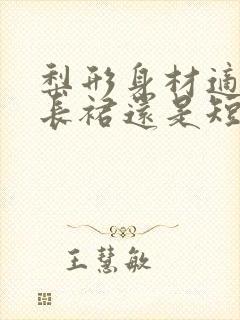 梨形身材適
長裙還是短
王慧敏